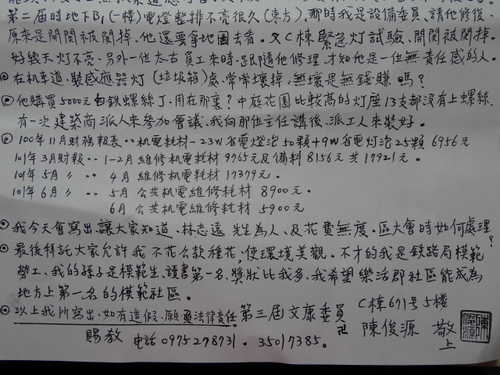 第二届時地下B1(C棟)電燈整排不亮很久(東方),那時我是設備委員,請他修復,
原來是開関被関掉,他還要爭地圖去看。又C棟緊急灯試驗,開関被関掉。
好幾天灯不亮,另外一位太古員工來時,跟隨他修理,才知他是一位無責任感的人。
⊙在机車道,裝感應器灯(垃圾箱)處,常常壞掉,無壞是無錢賺嗎?
⊙他購買5000元白鉄螺絲丁,用在那裏?中庭花園比較高的灯座13支都沒有上螺絲,
有一次建築商派人來參加會議,我向那位主任講後,派工人來裝好。
⊙100年11月財務報表‥机電耗材-23W省電燈泡50顆+9W省電燈泡25顆 6956元
101年3月財報‥1-2月維修机電耗材9765元及備料8156元共17921元。
101年5月〃‥4月維修机電耗材17379元。
101年6月〃‥5月公共机電維修耗材 8900元。
6月公共机電維修耗材 5900元
⊙我今天會寫出讓大家知道,林志遠先生為人,及花費無度,區大會時如何處理?
⊙最後拜託大家允許我不花公款種花,使環境美觀。不才的我是鉄路局模範
勞工,我的孫子是模範生,讀書第一名,獎狀比我多,我希望樂活郡社區能成為
地方上第一名的模範社區。
⊙以上我所寫出,如有造假,願負法律責任 第三屆文康委員 C棟671号5樓
卍 陳俊源 敬上
賜教 電話0975278731.35017385.